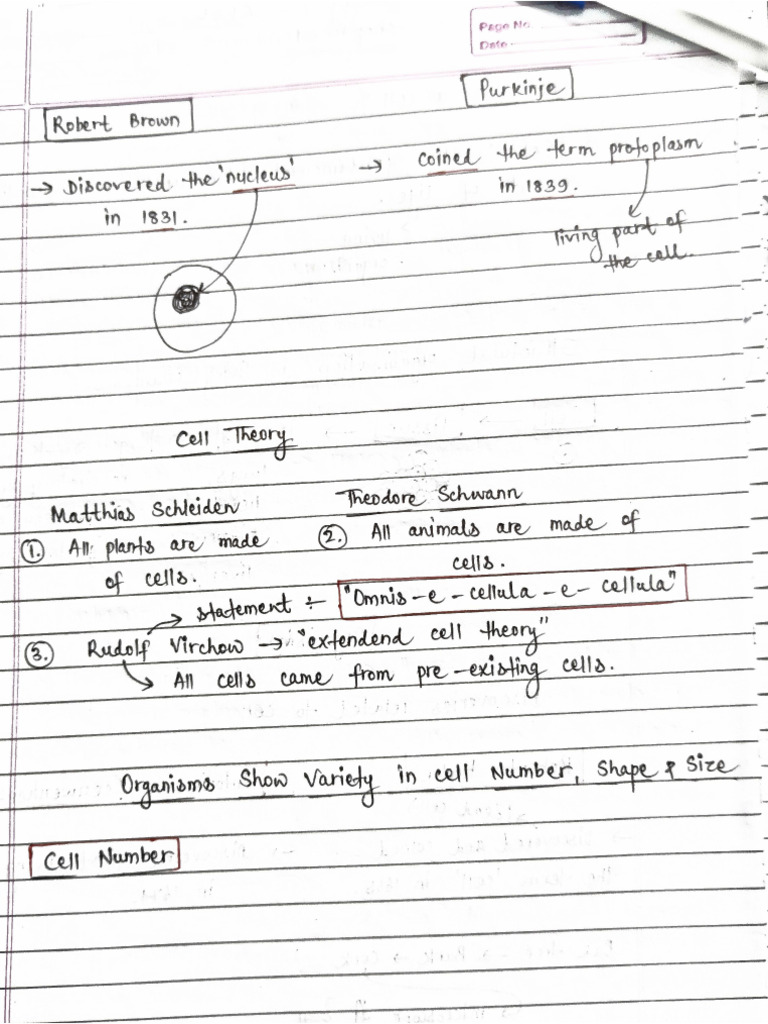 Page No.
Date
Robert Brown
Purkinje
→ Discovered the 'nucleus'
in 1831.
→ Coined the term protoplasm
in 1839.
living part of
the cell.
Cell Theory
Matthias Schleiden
① All plants are made
of cells.
Theodore Schwann
② All animals are made of
cells.
statement :- "Omnis-e-cellula-e-cellula"
③ Rudolf Virchow → "extendend cell theory"
All cells came from pre-existing cells.
Organisms Show Variety in cell Number, Shape & Size
Cell Number